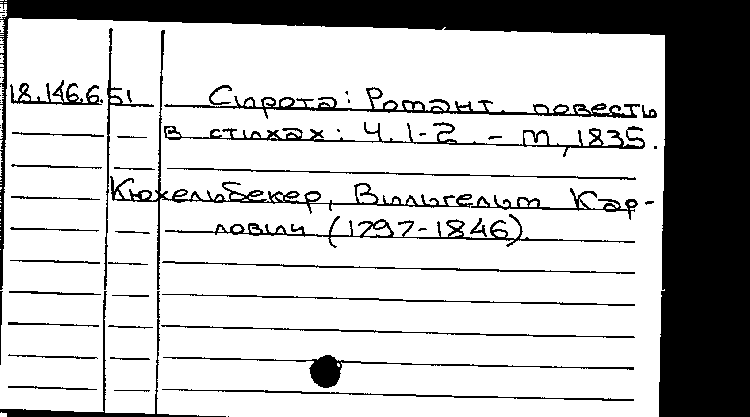 18.146.6.51 Сирота: Романт. повесть
в стихах: Ч. 1-2. - М., 1835.
Кюхельбекер, Вильгельм Кар-
лович (1797-1846).